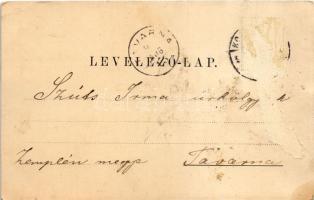 LEVELEZŐ-LAP.
Szűts Irma úrhölgynek
Zemplén megye Tavarna